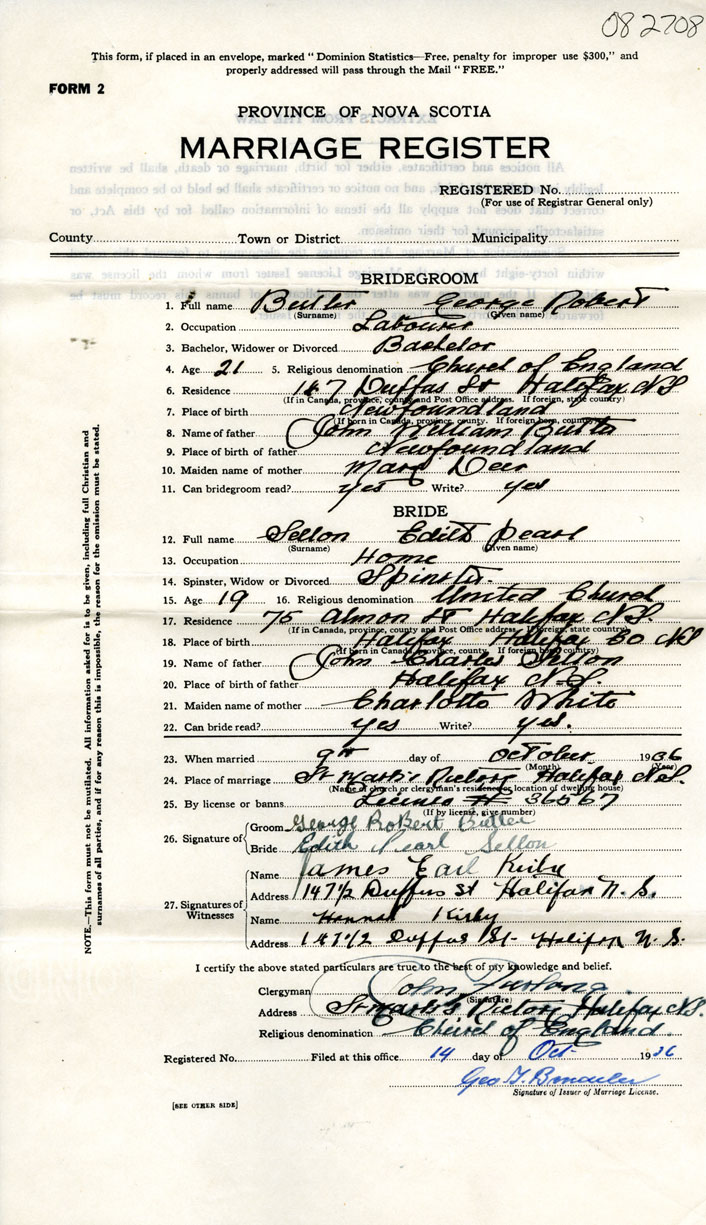 082708
This form, if placed in an envelope, marked "Dominion Statistics—Free, penalty for improper use $300," and
properly addressed will pass through the Mail "FREE."
FORM 2
PROVINCE OF NOVA SCOTIA
MARRIAGE REGISTER
REGISTERED No.
(For use of Registrar General only)
County Town or District Municipality
BRIDEGROOM
1. Full name Butler George Robert
(Surname) (Given name)
2. Occupation Labourer
3. Bachelor, Widower or Divorced Bachelor
4. Age 21 5. Religious denomination Church of England
6. Residence 147 Duffus St Halifax NS
(If in Canada, province, county and Post Office address. If foreign, state country)
7. Place of birth Newfoundland
(If born in Canada, province, county. If foreign born, country)
8. Name of father John William Butler
9. Place of birth of father Newfoundland
10. Maiden name of mother Mary Deer
11. Can bridegroom read? yes Write? yes
BRIDE
12. Full name Sellon Edith Pearl
(Surname) (Given name)
13. Occupation Home
14. Spinster, Widow or Divorced Spinster
15. Age 19 16. Religious denomination United Church
17. Residence 75 Almon St Halifax N.S.
(If in Canada, province, county and Post Office address. If foreign, state country)
18. Place of birth Halifax Halifax Co NS
(If born in Canada, province, county. If foreign born, country)
19. Name of father John Charles Sellon
20. Place of birth of father Halifax N.S.
21. Maiden name of mother Charlotte White
22. Can bride read? yes Write? yes.
23. When married 9th day of October 1936
(Month) (Year)
24. Place of marriage St Mark's Rectory Halifax N.S.
(Name of church or clergyman's residence or location of dwelling house)
25. By license or banns License # 36567
(If by license, give number)
26. Signature of Groom George Robert Butler
Bride Edith Pearl Sellon
27. Signatures of Witnesses
Name James Earl Kirby
Address 147½ Duffus St Halifax N.S.
Name Hannah Kirby
Address 147½ Duffus St- Halifax N.S.
I certify the above stated particulars are true to the best of my knowledge and belief.
Clergyman John Furlong
(Signature)
Address St Mark's Rectory, Halifax N.S.
Religious denomination Church of England.
Registered No. Filed at this office 14 day of Oct 1936
Geo T.
Signature of Issuer of Marriage License.
[SEE OTHER SIDE]
NOTE.—This form must not be mutilated. All information asked for is to be given, including full Christian and
surnames of all parties, and if for any reason this is impossible, the reason for the omission must be stated.